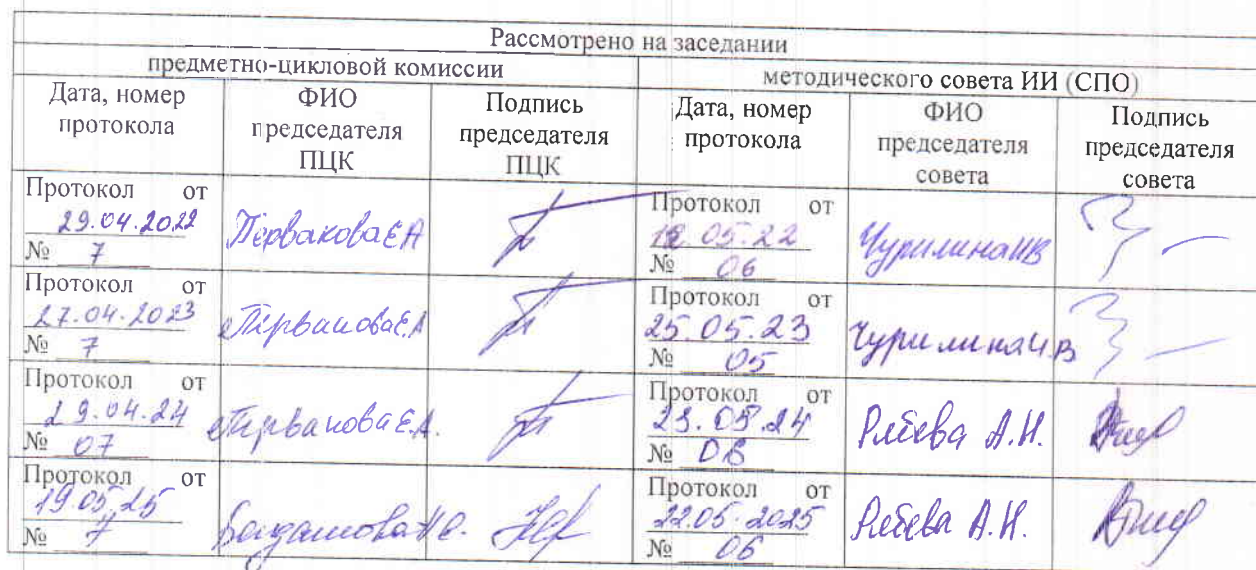 Рассмотрено на заседании
предметно-цикловой комиссии методического совета ИИ (СПО)
Дата, номер протокола ФИО председателя ПЦК Подпись председателя ПЦК Дата, номер протокола ФИО председателя совета Подпись председателя совета
Протокол от
29.04.2022
№ 7
Первакова Е А
Протокол от
05.22
№ 06
Чурилина ИВ
Протокол от
27.04.2023
№ 7
Первакова Е.А
Протокол от
25.05.23
№ 05
Чурилина И.В
Протокол от
29.04.24
№ 07
Первакова Е.А.
Протокол от
05.24
№
А.Н.
Протокол от
19.05.25
№ 7
Протокол от
22.05.2025
№ 06
А.Н.